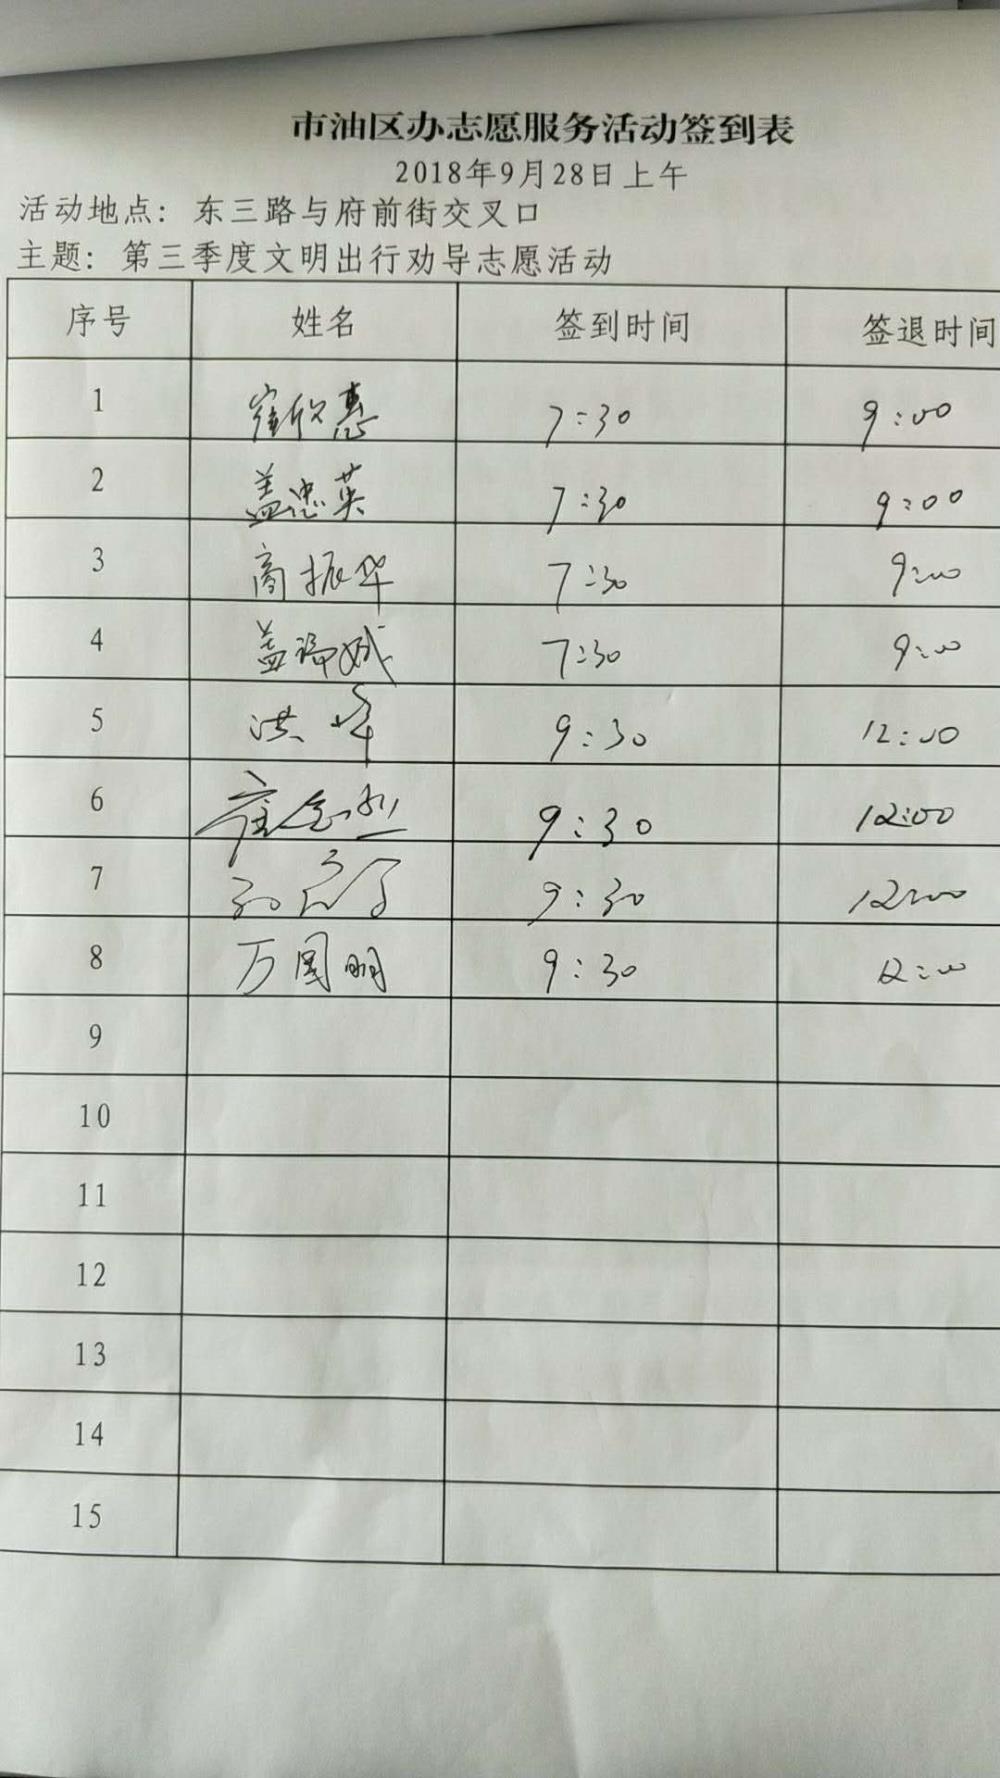 市油区办志愿服务活动签到表
2018年9月28日上午
活动地点：东三路与府前街交叉口
主题：第三季度文明出行劝导志愿活动
序号 姓名 签到时间 签退时间
1 崔欣惠 7:30 9:00
2 盖忠英 7:30 9:00
3 商振华 7:30 9:00
4 盖 7:30 9:00
5 洪峰 9:30 12:00
6 崔 9:30 12:00
7 9:30 12:00
8 万国明 9:30 12:00
9
10
11
12
13
14
15